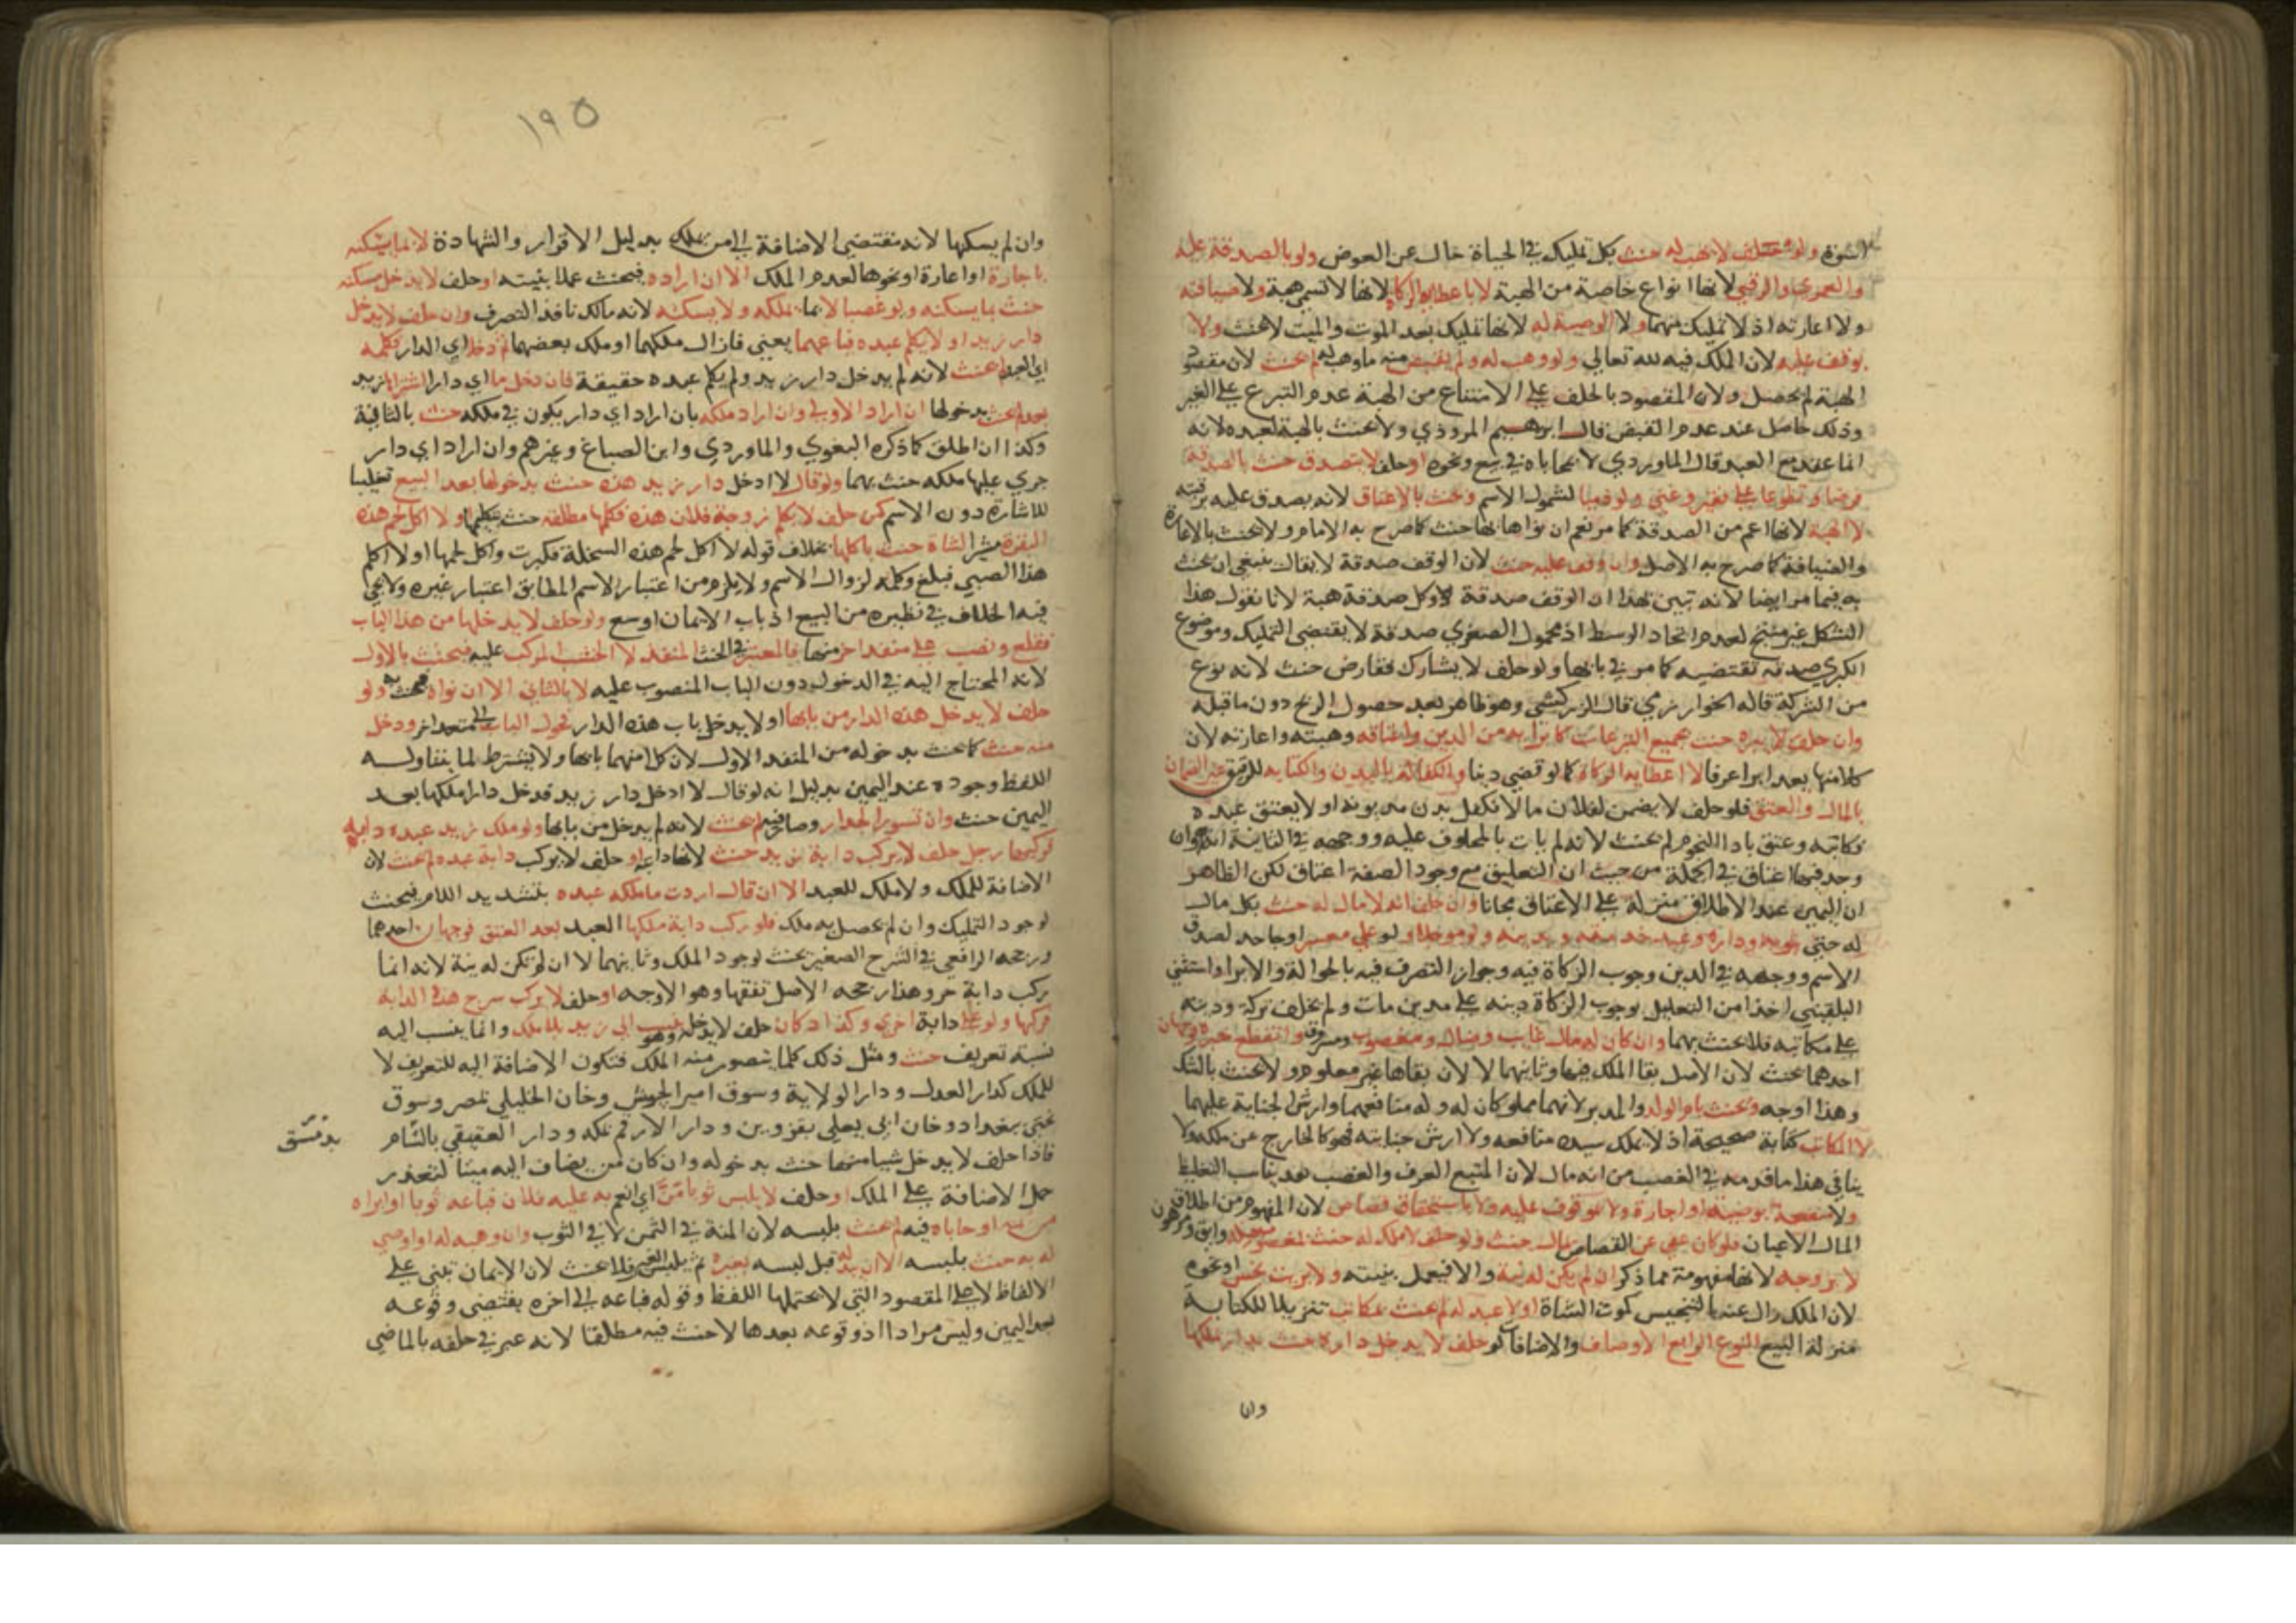 الشوة ولو حلف لا يهب له حنث بكل تمليك في الحياة خال عن العوض ولو بالصدقة عليه
والعمري والرقبي لانها انواع خاصة من الهبة لا باعطاء الزكاة لانها لا تسمي هبة ولا ضيافته
ولا اعارته اذ لا تمليك فيهما ولا الوصية له لانها تمليك بعد الموت والميت لا يحنث ولا
بوقف عليه لان الملك فيه لله تعالي ولو وهب له ولم يقبض منه ما وهب له لم يحنث لان مقصود
الهبة لم يحصل ولان المقصود بالحلف علي الامتناع من الهبة عدم التبرع علي الغير
وذلك حاصل عند عدم القبض قال ابرهيم المروذي ولا يحنث بالهبة لعبده لانه
انما عقد مع العبد قال الماوردي لا بمحاباه في بيع ونحوه او حلف لا يتصدق حنث بالصدقة
فرضا وتطوعا علي فقير وغني ولو ذميا لشمول الاسم وحنث بالاعتاق لانه يصدق عليه برقبته
لا الهبة لانها اعم من الصدقة كما مر نعم ان نواها بها حنث كما صرح به الامام ولا يحنث بالاعارة
والضيافة كما صرح به الاصل وان وقف عليه حنث لان الوقف صدقة لا يقال ينبغي ان يحنث
به فيما مر ايضا لانه تبين بهذا ان الوقف صدقة وكل صدقة هبة لانا نقول هذا
الشكل غير منتج لعدم اتحاد الوسط اذ محمول الصغري صدقة لا يقتضي التمليك وموضوع
الكبري صدقه تقتضيه كما مر في بابها ولو حلف لا يشارك فقارض حنث لانه نوع
من الشركة قاله الخوارزمي قال الزركشي وهو ظاهر بعد حصول الربح دون ما قبله
وان حلف لا يبره حنث بجميع التبرعات كابرايه من الدين واعتاقه وهبته واعارته لان
كلا منها يعد برا عرفا لا اعطايه الزكاة كما لو قضي دينا والكفالة بالبدن والكتابة للرقيق غير الضمان
بالمال والعتق فلو حلف لا يضمن لفلان مالا فكفل بدن مديونه او لا يعتق عبده
فكاتبه وعتق باداء النجوم لم يحنث لانه لم يات بالمحلوف عليه ووجهه في الثانية انه وان
وجد فيها اعتاق في الجملة من حيث ان التعليق مع وجود الصفة اعتاق لكن الظاهر
ان اليمين عند الاطلاق منزلة علي الاعتاق مجانا وان حلف انه لا مال له حنث بكل مال
له حتي بثوبه وداره وعبد خدمته ودينه ولو مؤجلا ولو علي معسر او جاحد لصدق
الاسم ووجهه في الدين وجوب الزكاة فيه وجواز التصرف فيه بالحوالة والابرا واستثني
البلقيني اخذا من التعليل بوجوب الزكاة دينه علي مدين مات ولم يخلف تركة ودينه
علي مكاتبه فلا يحنث بهما وان كان له مال غايب وضال ومغصوب ومسروق وانقطع خبره وجهان
احدهما يحنث لان الاصل بقا الملك فيها وثانيهما لا لان بقاها غير معلوم ولا يحنث بالشك
وهذا اوجه ويحنث بام الولد والمدبر لانهما مملوكان له وله منافعهما وارش الجناية عليهما
لا المكاتب كتابة صحيحة اذ لا يملك سيده منافعه ولا ارش جنايته فهو كالخارج عن ملكه ولا
ينافي هذا ما قدمته في الغصب من انه مال لان المتبع العرف والغصب تعد يناسب التغليظ
ولا منفعة بوصية او اجارة ولا موقوف عليه ولا باستحقاق قصاص لان المفهوم من اطلاق
المال الاعيان فلو كان عفي عن القصاص بمال حنث ولو حلف لا ملك له حنث بمغصوب منه وابق ومرهون
لا بزوجة لانها مفهومة مما ذكر ان لم يكن له نية والا فيعمل بنيته ولا بزيت نجس او نحوه
لان الملك زال عنه بالتنجيس كموت الشاة او لا عبد له لم يحنث بمكاتب تنزيلا للكتابة
منزلة البيع النوع الرابع الاوصاف والاضافات لو حلف لا يدخل داره حنث بدار يملكها
وان
١٩٥
وان لم يسكنها لانه مقتضي الاضافة الي من يملك بدليل الاقرار والشهادة لا بما يسكنه
باجارة او اعارة او نحوها لعدم الملك الا ان اراده فيحنث عملا بنيته او حلف لا يدخل مسكنه
حنث بما يسكنه ولو غصبا لا بما يملكه ولا يسكنه لانه مالك نافذ التصرف وان حلف لا يدخل
دار زيد او لا يكلم عبده فباعهما يعني فازال ملكهما او ملك بعضهما ثم دخل اي الدار فكلمه
اي العبد لم يحنث لانه لم يدخل دار زيد ولم يكلم عبده حقيقة فان دخل ما اي دارا اشتراها زيد
بعد لم يحنث بدخولها ان اراد الاولي وان اراد ملكه بان اراد اي دار يكون في ملكه حنث بالثانية
وكذا ان اطلق كما ذكره البغوي والماوردي وابن الصباغ وغيرهم وان اراد اي دار
جري عليها ملكه حنث بهما ولو قال لا ادخل دار زيد هذه حنث بدخولها بعد البيع تغليبا
للاشارة دون الاسم كمن حلف لا يكلم زوجة فلان هذه فكلمها مطلقه حنث بتكليمها ولا اكل لحم هذه
البقرة مشيرا لشاة حنث باكلها بخلاف قوله لا اكل لحم هذه السخلة فكبرت واكل لحمها او لا اكلم
هذا الصبي فبلغ وكلمه لزوال الاسم ولا يلزم من اعتبار الاسم المطابق اعتبار غيره ولا يجي
فيه الخلاف في نظيره من البيع اذ باب الايمان اوسع ولو حلف لا يدخلها من هذا الباب
فقلع ونصب علي منفذ اخر منها فالمعتبر في الحنث المنفذ لا الخشب المركب عليه فيحنث بالاول
لانه المحتاج اليه في الدخول دون الباب المنصوب عليه لا بالثاني الا ان نواه فيحنث به ولو
حلف لا يدخل هذه الدار من بابها او لا يدخل باب هذه الدار فحول الباب الي منفذ اخر ودخل
منه حنث كما يحنث بدخوله من المنفذ الاول لان كلا منهما بابها ولا يشترط لما يتناوله
اللفظ وجوده عند اليمين بدليل انه لو قال لا ادخل دار زيد فدخل دارا ملكها بعد
اليمين حنث وان تسور الجدار وصار فيها لم يحنث لانه لم يدخل من بابها ولو ملك زيد عبده دابة
فركبها رجل حلف لا يركب دابة زيد حنث لانها دابته او حلف لا يركب دابة عبده لم يحنث لان
الاضافة للملك ولا ملك للعبد الا ان قال اردت ما ملكه عبده بتشديد اللام فيحنث
لوجود التمليك وان لم يحصل به ملك فلو ركب دابة ملكها العبد بعد العتق فوجهان احدهما
ورجحه الرافعي في الشرح الصغير يحنث لوجود الملك وثانيهما لا ان لم تكن له نية لانه انما
ركب دابة حر وهذا رجحه الاصل تفقها وهو الاوجه او حلف لا يركب سرج هذه الدابة
فركبها ولو علي دابة اخري وكذا دكان حلف لا يدخله وهو ينسب الي زيد بلا ملك وانما ينسب اليه
نسبة تعريف حنث ومثل ذلك كلما يتصور منه الملك فتكون الاضافة اليه للتعريف لا
للملك كدار العدل ودار الولاية وسوق امير الجيوش وخان الخليلي بمصر وسوق
يحيي ببغداد وخان ابي يعلي بقزوين ودار الارقم بمكه ودار العقيقي بالشام
بدمشق
فاذا حلف لا يدخل شيا منها حنث بدخوله وان كان من يضاف اليه ميتا لتعذر
حمل الاضافة علي الملك او حلف لا يلبس ثوبا منّ اي انعم به عليه فلان فباعه ثوبا او ابراه
من ثمنه او حاباه فيه لم يحنث بلبسه لان المنة في الثمن لا في الثوب وان وهبه له او اوصي
له به حنث بلبسه الا ان بدله قبل لبسه بغيره ثم يلبس الغير فلا يحنث لان الايمان تبني علي
الالفاظ لا علي المقصود التي لا يحتملها اللفظ وقوله فباعه الي اخره يقتضي وقوعه
بعد اليمين وليس مرادا اذ وقوعه بعدها لا حنث فيه مطلقا لانه عبر في حلفه بالماضي